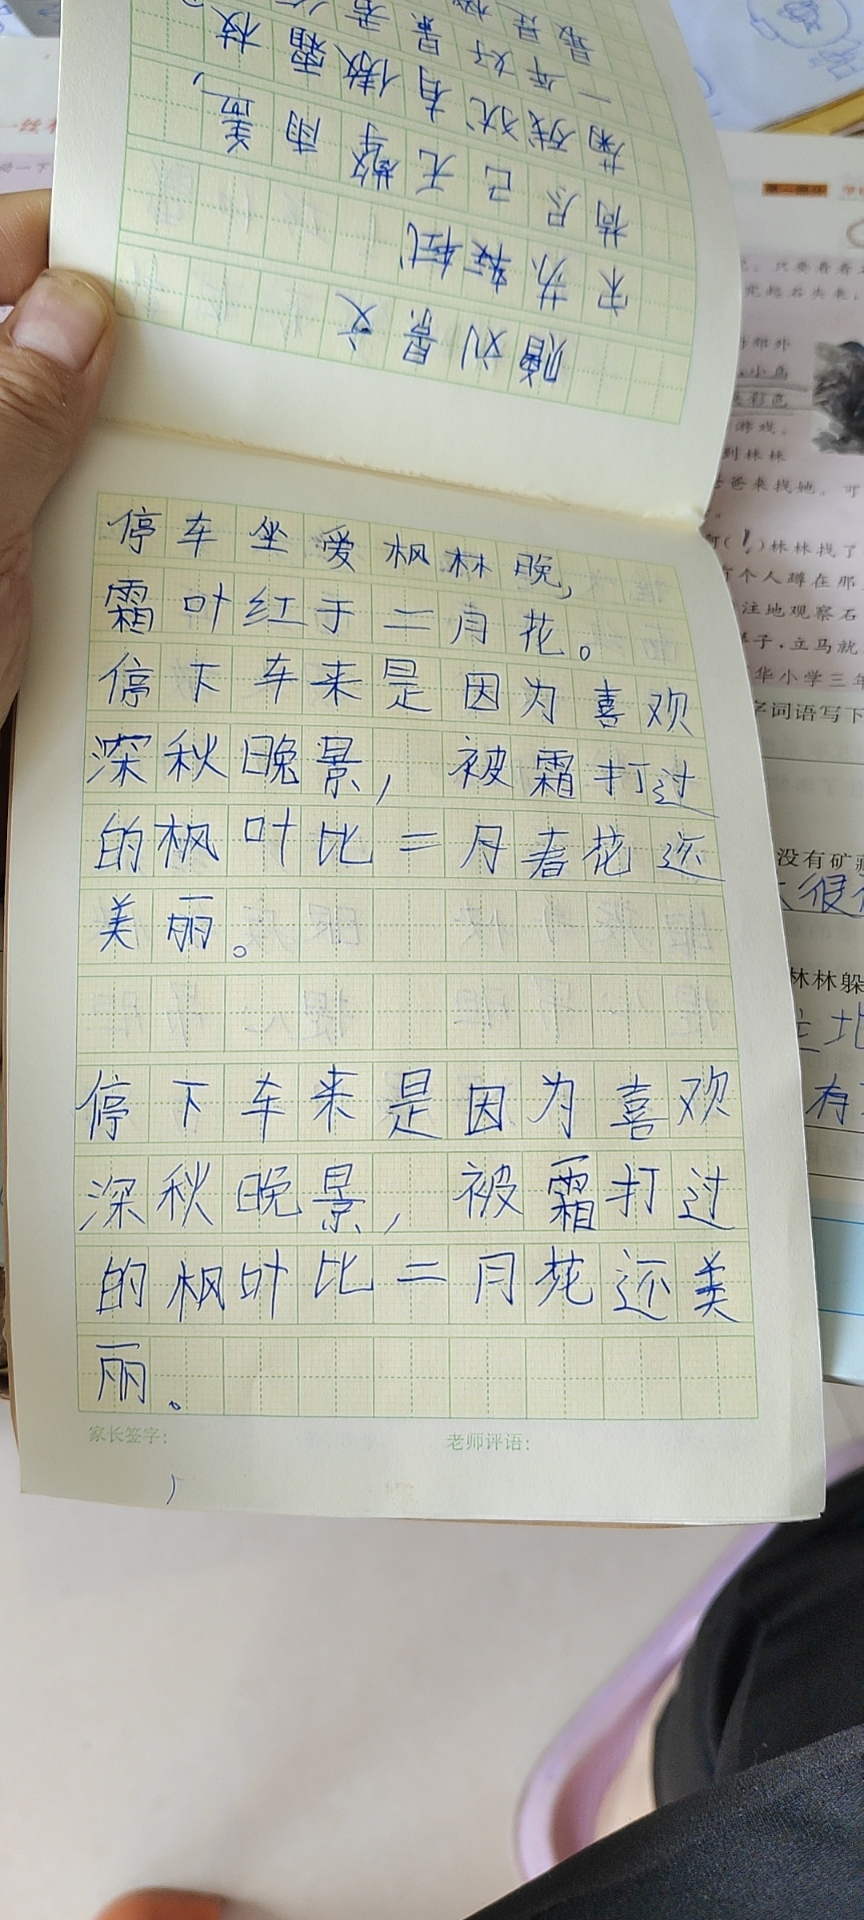 赠刘景文
宋 苏轼
荷尽已无擎雨盖,
菊残犹有傲霜枝
一年好景
最是
停车坐爱枫林晚,
霜叶红于二月花。
停下车来是因为喜欢
深秋晚景,被霜打过
的枫叶比二月春花还
美丽。
停下车来是因为喜欢
深秋晚景,被霜打过
的枫叶比二月花还美
丽.
家长签字:
老师评语:
郊外
小鸟
彩色
游戏。
到林林
爸爸来找她。可
林林找了
个人蹲在那
注地观察石
子,立马就
华小学三年
字词语写下
没有矿藏
很
林林躲
北
有